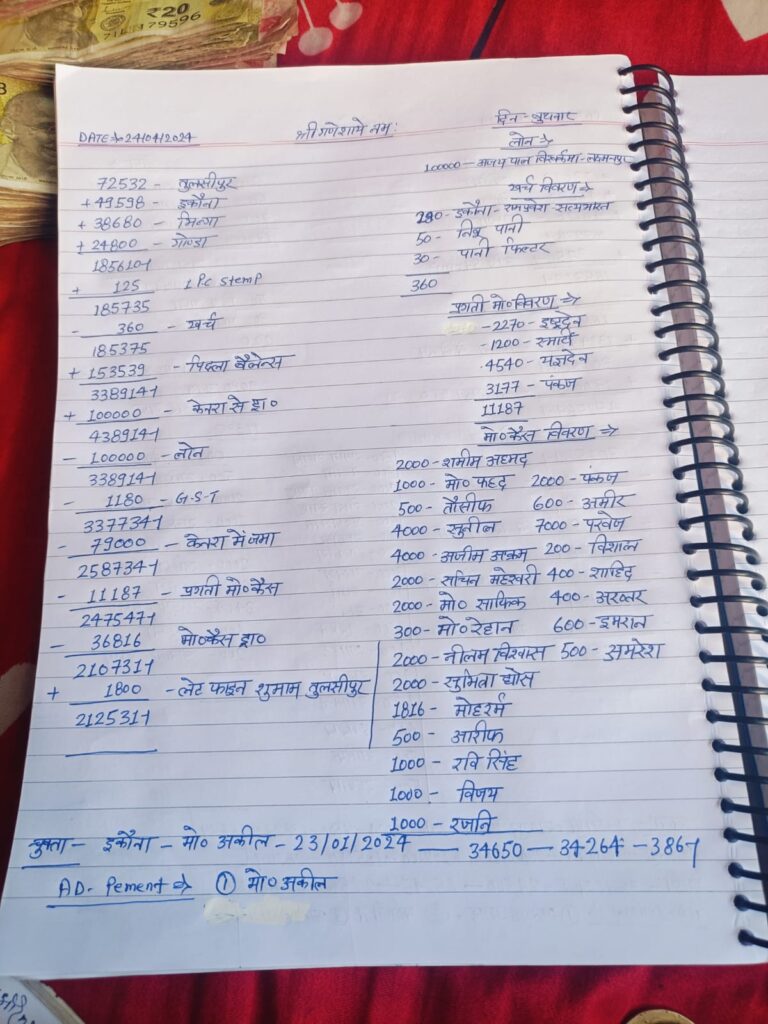 ₹20
DATE→24/04/2024
श्री गणेशाये नम:
दिन - बुधवार
72532 - तुलसीपुर
+49598 - इकौना
+ 38680 - भिन्गा
+ 24800 - गोण्डा
185610/-
+ 125 1 Pc Stemp
185735
- 360 - खर्च
185375
+ 153539 - पिछ्ला बैलेन्स
338914/-
+ 100000 - केनरा से ड्रा०
438914/-
- 100000 - लोन
338914/-
- 1180 - G.S.T
337734/-
- 79000 - केनरा में जमा
258734/-
- 11187 - प्रगती मो० कैस
247547/-
- 36816 मो० कैस ड्रा०
210731/-
+ 1800 - लेट फाइन शुमाम तुलसीपुर
212531/-
लोन →
100000 - अजय पाल विश्वकर्मा-लक्ष्मनपुर
खर्च विवरण →
280 - इकौना - रामप्रवेश-सत्यभारत
50 - निबू पानी
30 - पानी फिल्टर
360
प्रगती मो० विवरण →
-2270 - इन्द्रदेन
-1200 - स्मार्थ
4540 - यज्ञदेन
3177 - पंकज
11187
मो० कैस विवरण →
2000 - शमीम अहमद
1000 - मो० फहद 2000 - पंकज
500 - तौसीफ 600 - अमीर
4000 - सुनील 7000 - परवेज
4000 - अजीम अक्रम 200 - विशाल
2000 - सचिन महेश्वरी 400 - शाहिद
2000 - मो० साफिक 400 - अख्तर
300 - मो० रेहान 600 - इमरान
2000 - नीलम विश्वास 500 - अमरेश
2000 - सुमिता घोस
1816 - मोहर्रम
500 - आरीफ
1000 - रवि सिंह
1000 - विजय
1000 - रजनि
चुक्ता - इकौना - मो० अकील - 23/01/2024 — 34650 — 34264 - 386/-
AD. Pement → ① मो० अकील